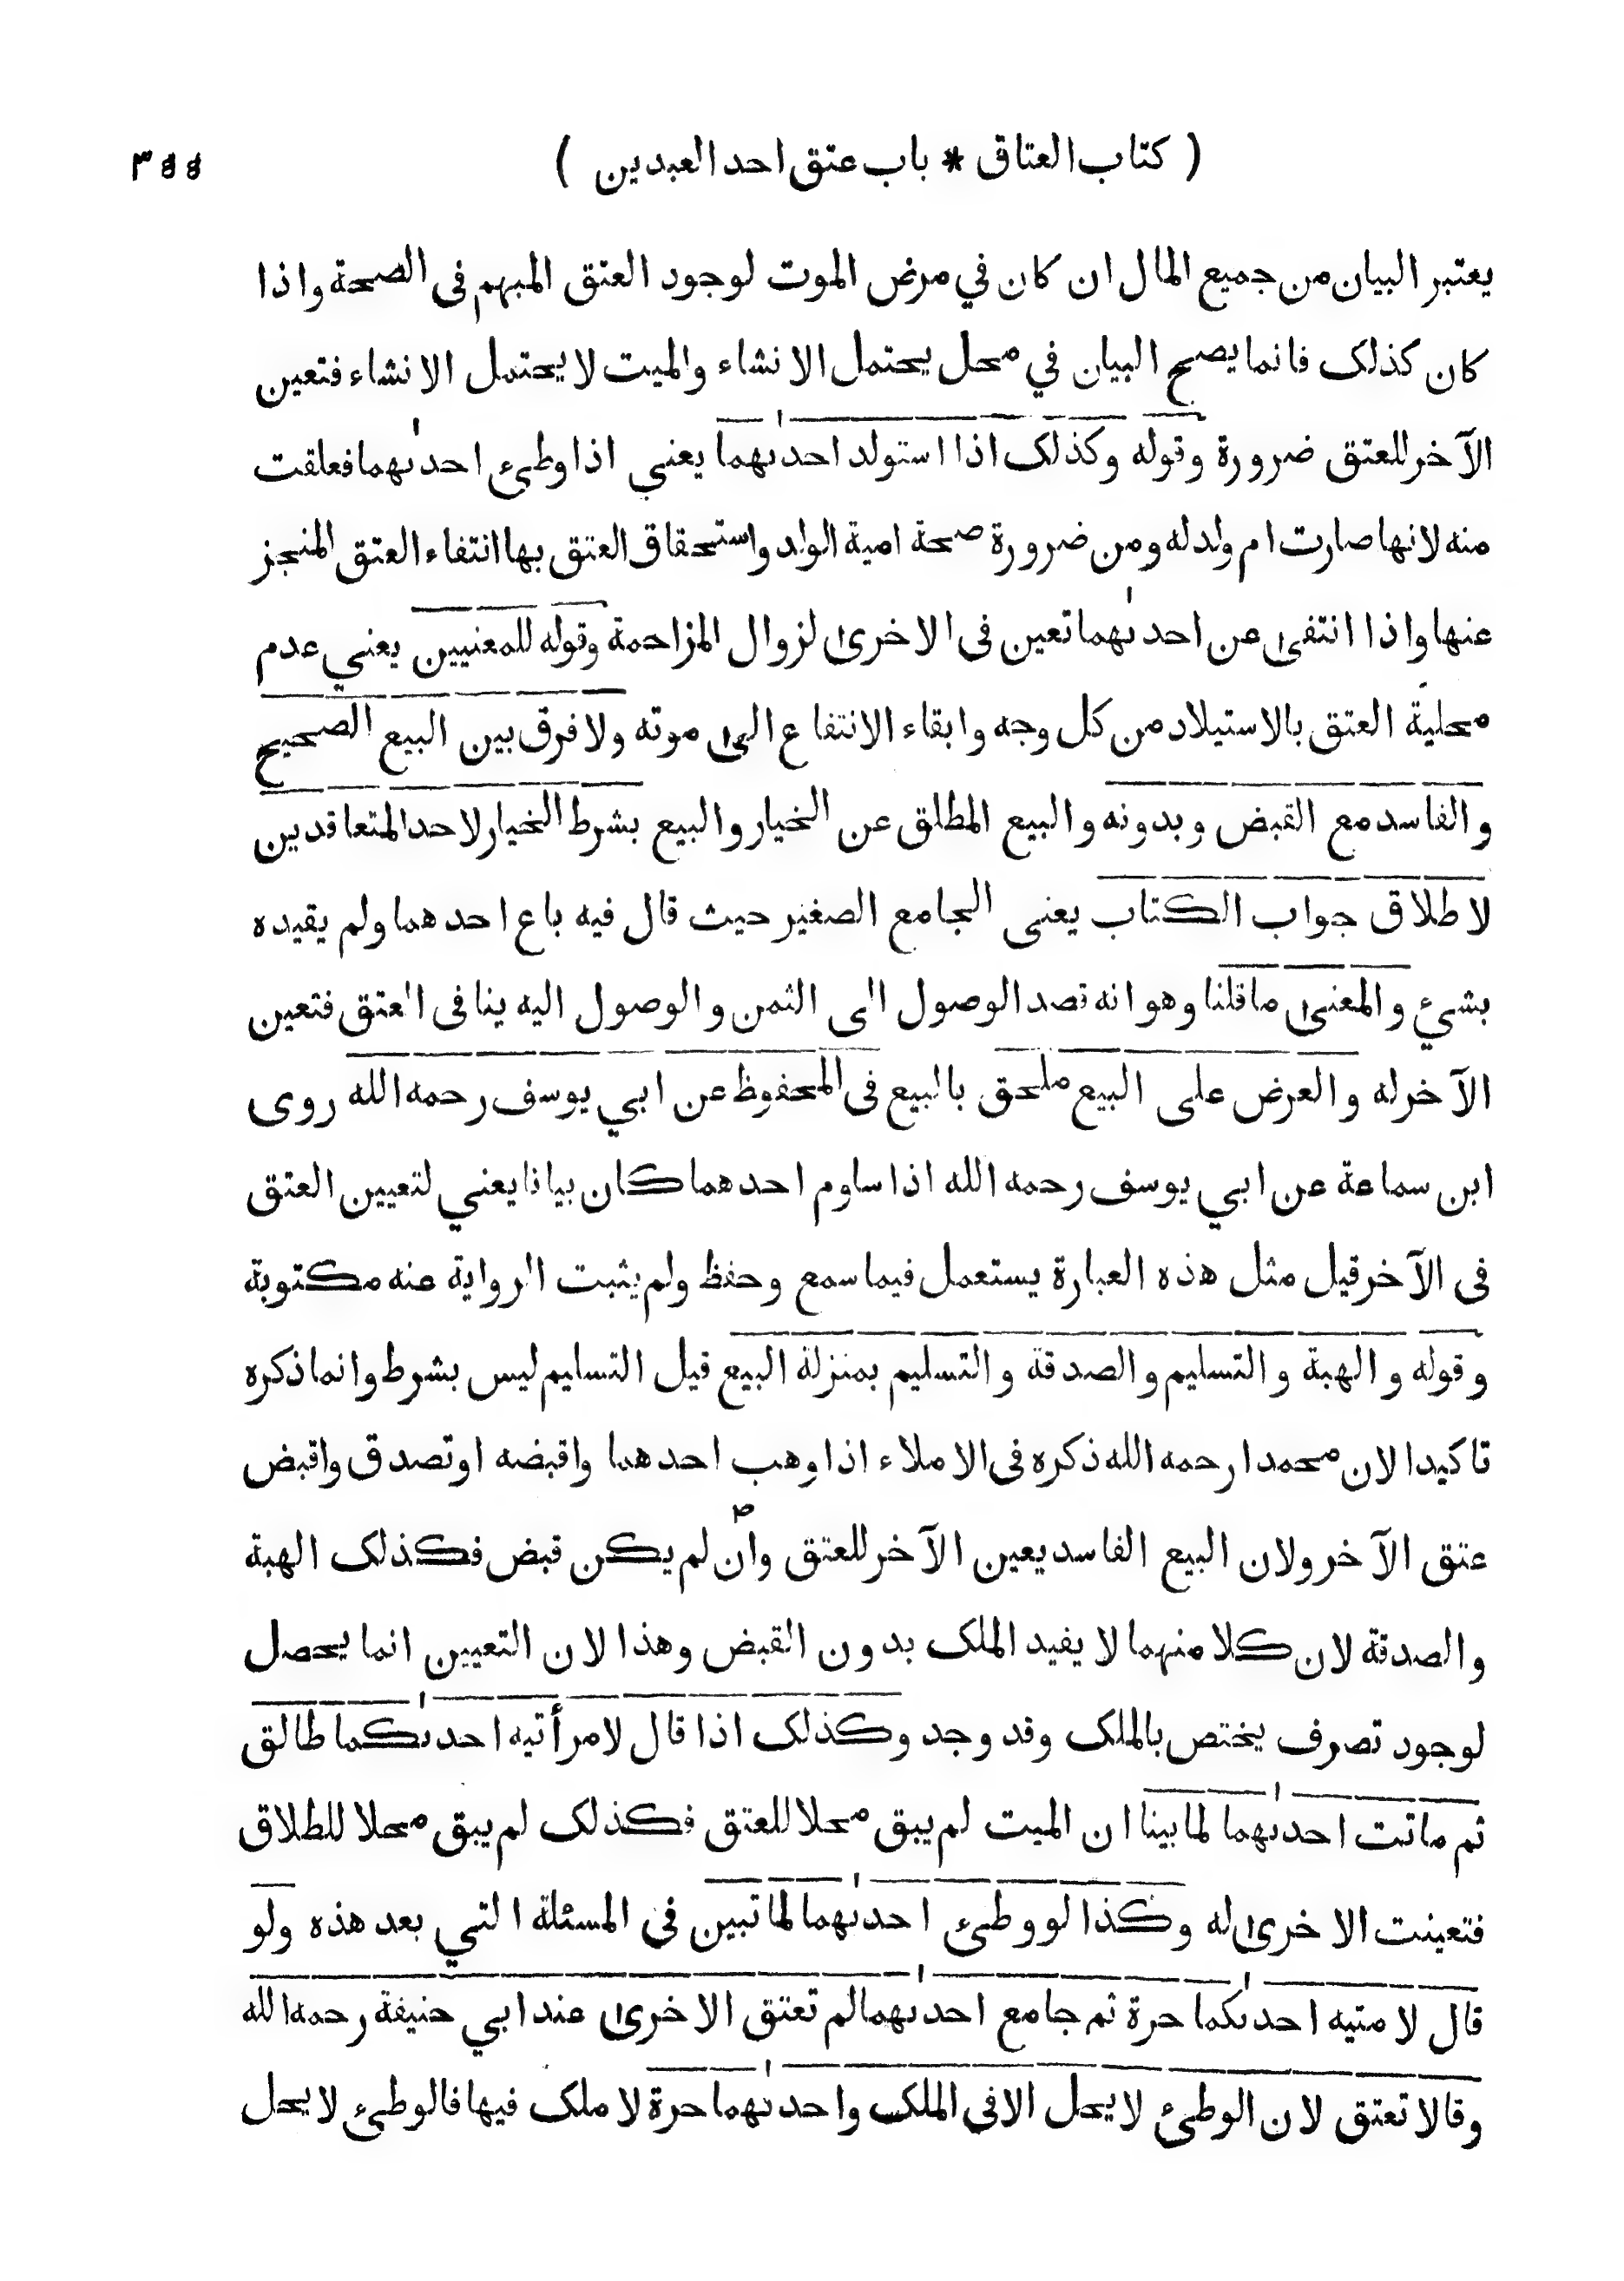 ( كتاب العتاق * باب عتق احد العبدين ) ٣٤٤
يعتبر البيان من جميع المال ان كان في مرض الموت لوجود العتق المبهم فى الصحة واذا
كان كذلك فانما يصح البيان في محل يحتمل الانشاء والميت لا يحتمل الانشاء فتعين
الآخر للعتق ضرورة وقوله وكذلك اذا استولد احدىهما يعني اذا وطئ احدىهما فعلقت
منه لانها صارت ام ولد له ومن ضرورة صحة امية الولد واستحقاق العتق بها انتفاء العتق المنجز
عنها واذا انتفى عن احدىهما تعين فى الاخرى لزوال المزاحمة وقوله للمعنيين يعني عدم
محلية العتق بالاستيلاد من كل وجه وابقاء الانتفاع الى موته ولا فرق بين البيع الصحيح
والفاسد مع القبض وبدونه والبيع المطلق عن الخيار والبيع بشرط الخيار لاحد المتعاقدين
لاطلاق جواب الكتاب يعنى الجامع الصغير حيث قال فيه باع احدهما ولم يقيده
بشئ والمعنى ما قلنا وهو انه قصد الوصول الى الثمن والوصول اليه ينافى العتق فتعين
الآخر له والعرض على البيع ملحق بالبيع فى المحفوظ عن ابي يوسف رحمه الله روى
ابن سماعة عن ابي يوسف رحمه الله اذا ساوم احدهما كان بيانا يعني لتعيين العتق
فى الآخر قيل مثل هذه العبارة يستعمل فيما سمع وحفظ ولم يثبت الرواية عنه مكتوبة
وقوله والهبة والتسليم والصدقة والتسليم بمنزلة البيع قيل التسليم ليس بشرط وانما ذكره
تاكيدا لان محمدا رحمه الله ذكره فى الاملاء اذا وهب احدهما واقبضه او تصدق واقبض
عتق الآخر ولان البيع الفاسد يعين الآخر للعتق وان لم يكن قبض فكذلك الهبة
والصدقة لان كلا منهما لا يفيد الملك بدون القبض وهذا لان التعيين انما يحصل
لوجود تصرف يختص بالملك وقد وجد وكذلك اذا قال لامرأتيه احدىكما طالق
ثم ماتت احدىهما لما بينا ان الميت لم يبق محلا للعتق فكذلك لم يبق محلا للطلاق
فتعينت الاخرى له وكذا لو وطئ احدىهما لما تبين فى المسئلة التي بعد هذه ولو
قال لامتيه احدىكما حرة ثم جامع احدىهما لم تعتق الاخرى عند ابي حنيفة رحمه الله
وقالا تعتق لان الوطئ لا يحل الا فى الملك واحدىهما حرة لا ملك فيها فالوطئ لا يحل